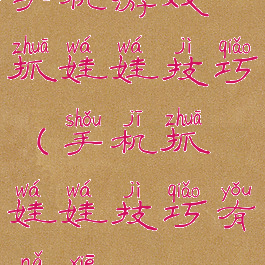 zhuā wá wá jì qiǎo
抓娃娃技巧
shǒu jī zhuā
（手机抓
wá wá jì qiǎo yǒu
娃娃技巧有
nǎ xiē